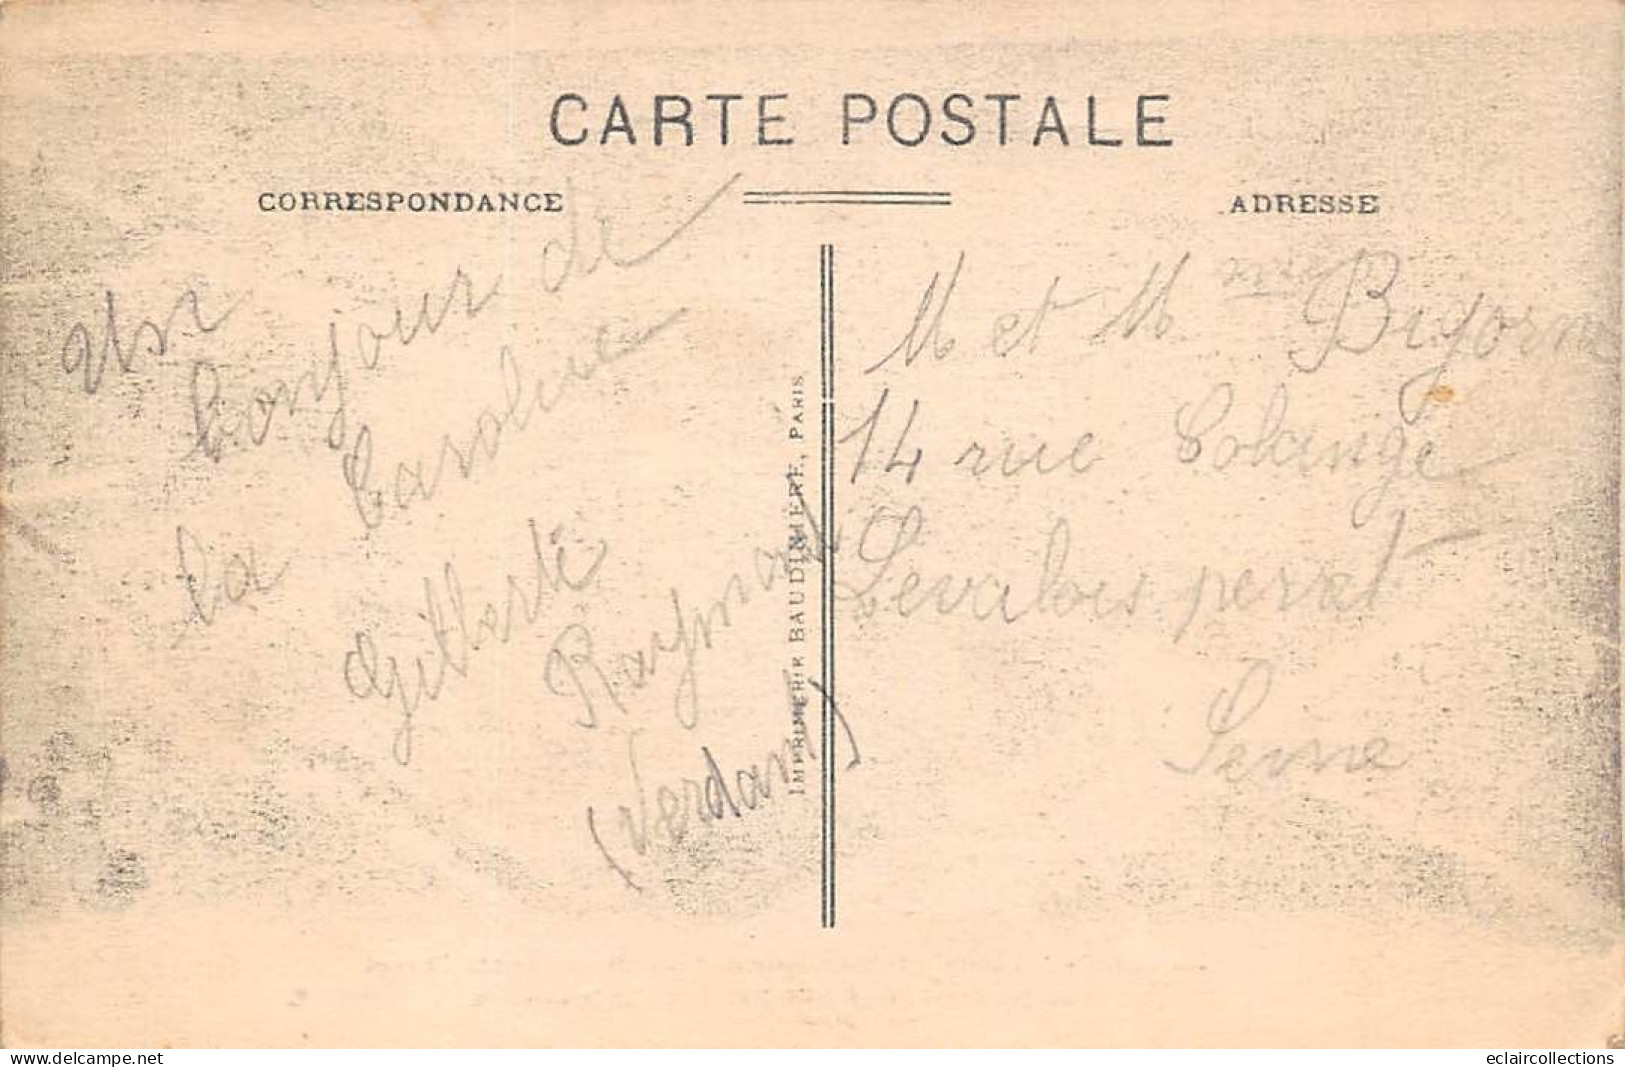 CARTE POSTALE
CORRESPONDANCE
ADRESSE
Un
bonjour de
la Caroline
Gilberte
Raymond
(Verdan)
IMPRIMERIE BAUDINIERE, PARIS
M et M me Bigorn
14 rue Colange
Levalois peret
Seine
www.delcampe.net
eclaircollections